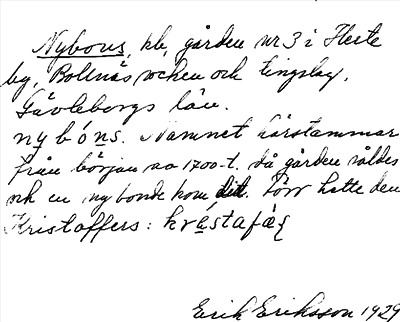 Nybons, kb, gården nr 3 i Herte
by, Bollnäs socken och tingslag,
Gävleborgs län.
nybóns. Namnet härstammar
från början av 1700-t. då gården såldes
och en ny bonde kom dit. Förr hette den
Kristoffers:
Erik Eriksson 1929